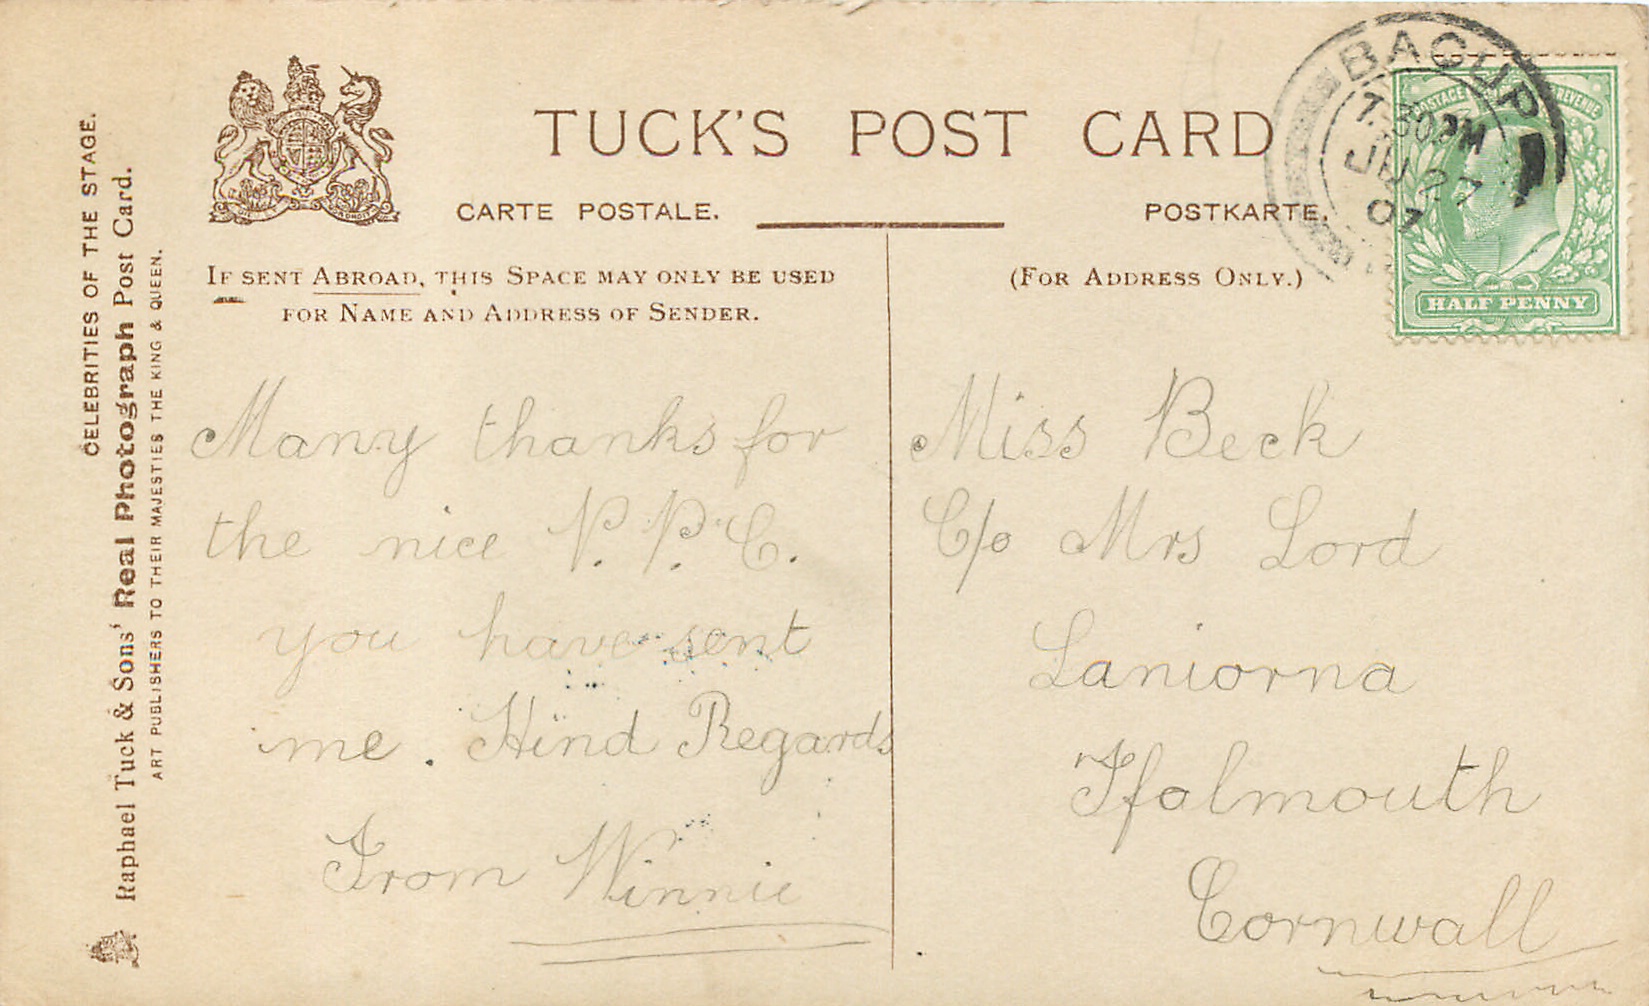 TUCK'S POST CARD
CARTE POSTALE.
POSTKARTE.
IF SENT ABROAD, THIS SPACE MAY ONLY BE USED
FOR NAME AND ADDRESS OF SENDER.
(FOR ADDRESS ONLY.)
BACUP
7.30PM
JU 27
07
POSTAGE
REVENUE
HALF PENNY
CELEBRITIES OF THE STAGE.
Raphael Tuck & Sons' Real Photograph Post Card.
ART PUBLISHERS TO THEIR MAJESTIES THE KING & QUEEN.
Many thanks for
the nice P.P.C.
you have sent
me. Kind Regards
From Winnie
Miss Beck
C/o Mrs Lord
Laniorna
Ffalmouth
Cornwall